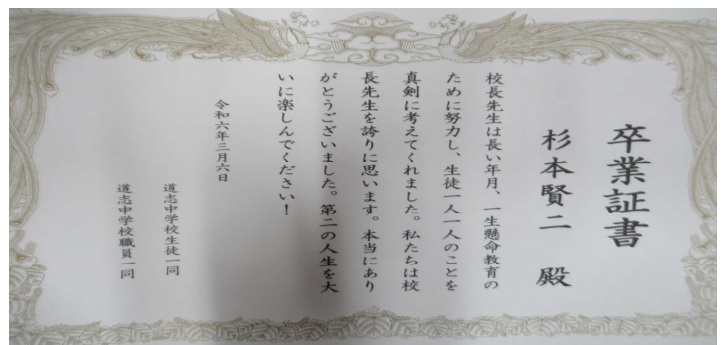 卒業証書
杉本賢二 殿
校長先生は長い年月、一生懸命教育の
ために努力し、生徒一人一人のことを
真剣に考えてくれました。私たちは校
長先生を誇りに思います。本当にあり
がとうございました。第二の人生を大
いに楽しんでください!
令和六年三月六日
道志中学校生徒一同
道志中学校職員一同